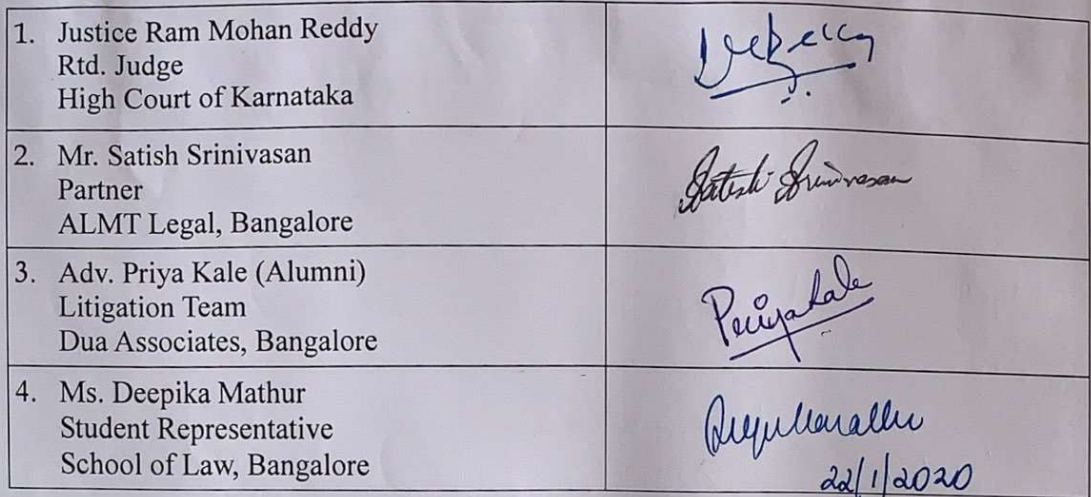 1. Justice Ram Mohan Reddy
Rtd. Judge
High Court of Karnataka
2. Mr. Satish Srinivasan
Partner
ALMT Legal, Bangalore
Satish Srinivasan
3. Adv. Priya Kale (Alumni)
Litigation Team
Dua Associates, Bangalore
Priya Kale
4. Ms. Deepika Mathur
Student Representative
School of Law, Bangalore
22/1/2020